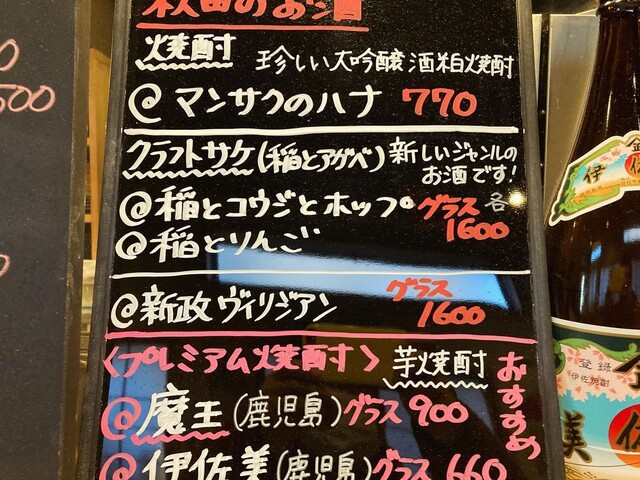 秋田のお酒
焼酎 珍しい大吟醸酒粕焼酎
@マンサクのハナ 770
クラフトサケ(稲とアガベ) 新しいジャンルの
お酒です!
@稲とコウジとホップ グラス 各
1600
@稲とりんご
@新政ヴィリジアン グラス
1600
〈プレミアム焼酎〉 芋焼酎 おすすめ
@魔王(鹿児島)グラス 900
@伊佐美(鹿児島)グラス 660
500
金
伊佐
登録
伊佐焼酎
伊
美